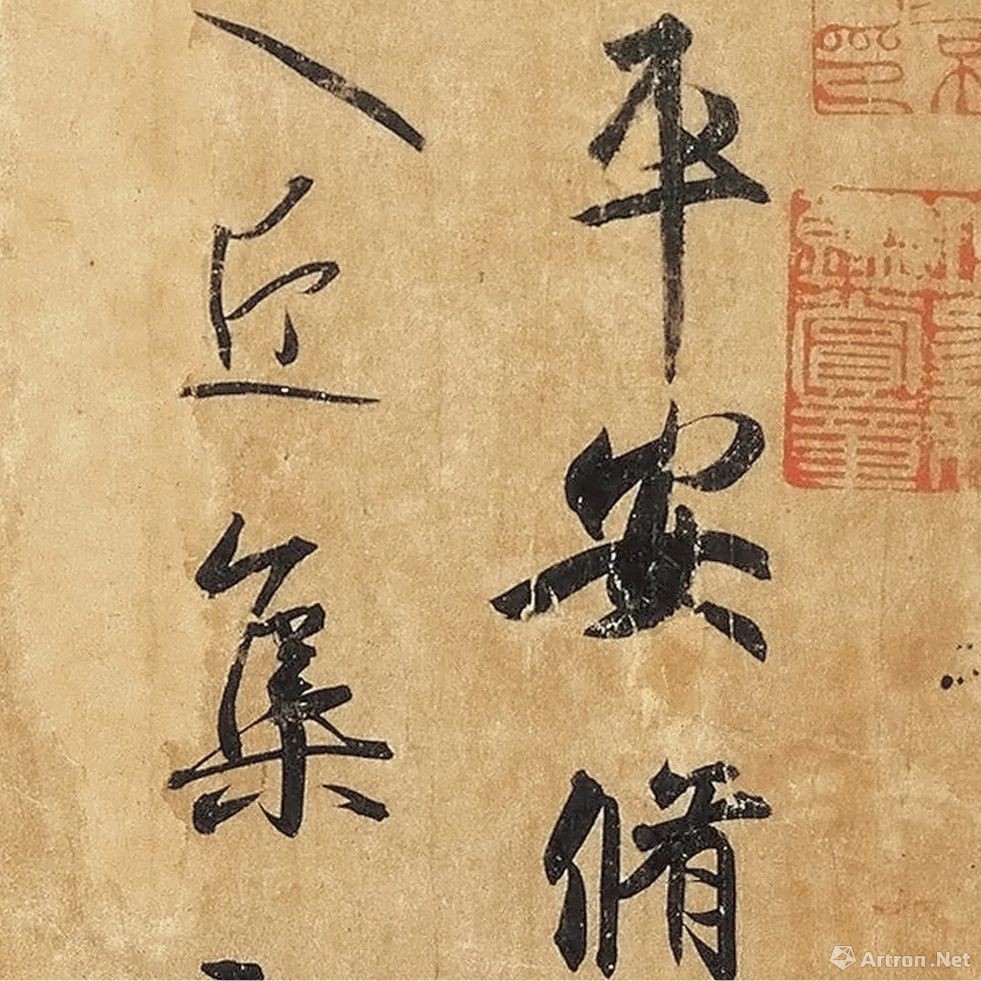 平安脩
近集
Artron.Net